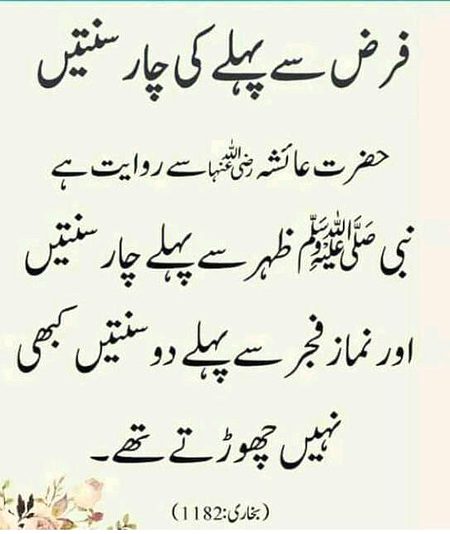 فرض سے پہلے کی چار سنتیں
حضرت عائشہ رضی اللہ عنہا سے روایت ہے
نبی ﷺ ظہر سے پہلے چار سنتیں
اور نماز فجر سے پہلے دو سنتیں کبھی
نہیں چھوڑتے تھے۔
(بخاری:1182)